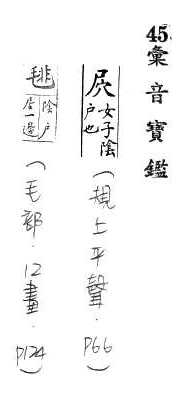 45.彙音寶鑑
女子陰
戶也
(規上平聲.P66)
毴
陰戶
一邊
(毛部.12畫.P124)